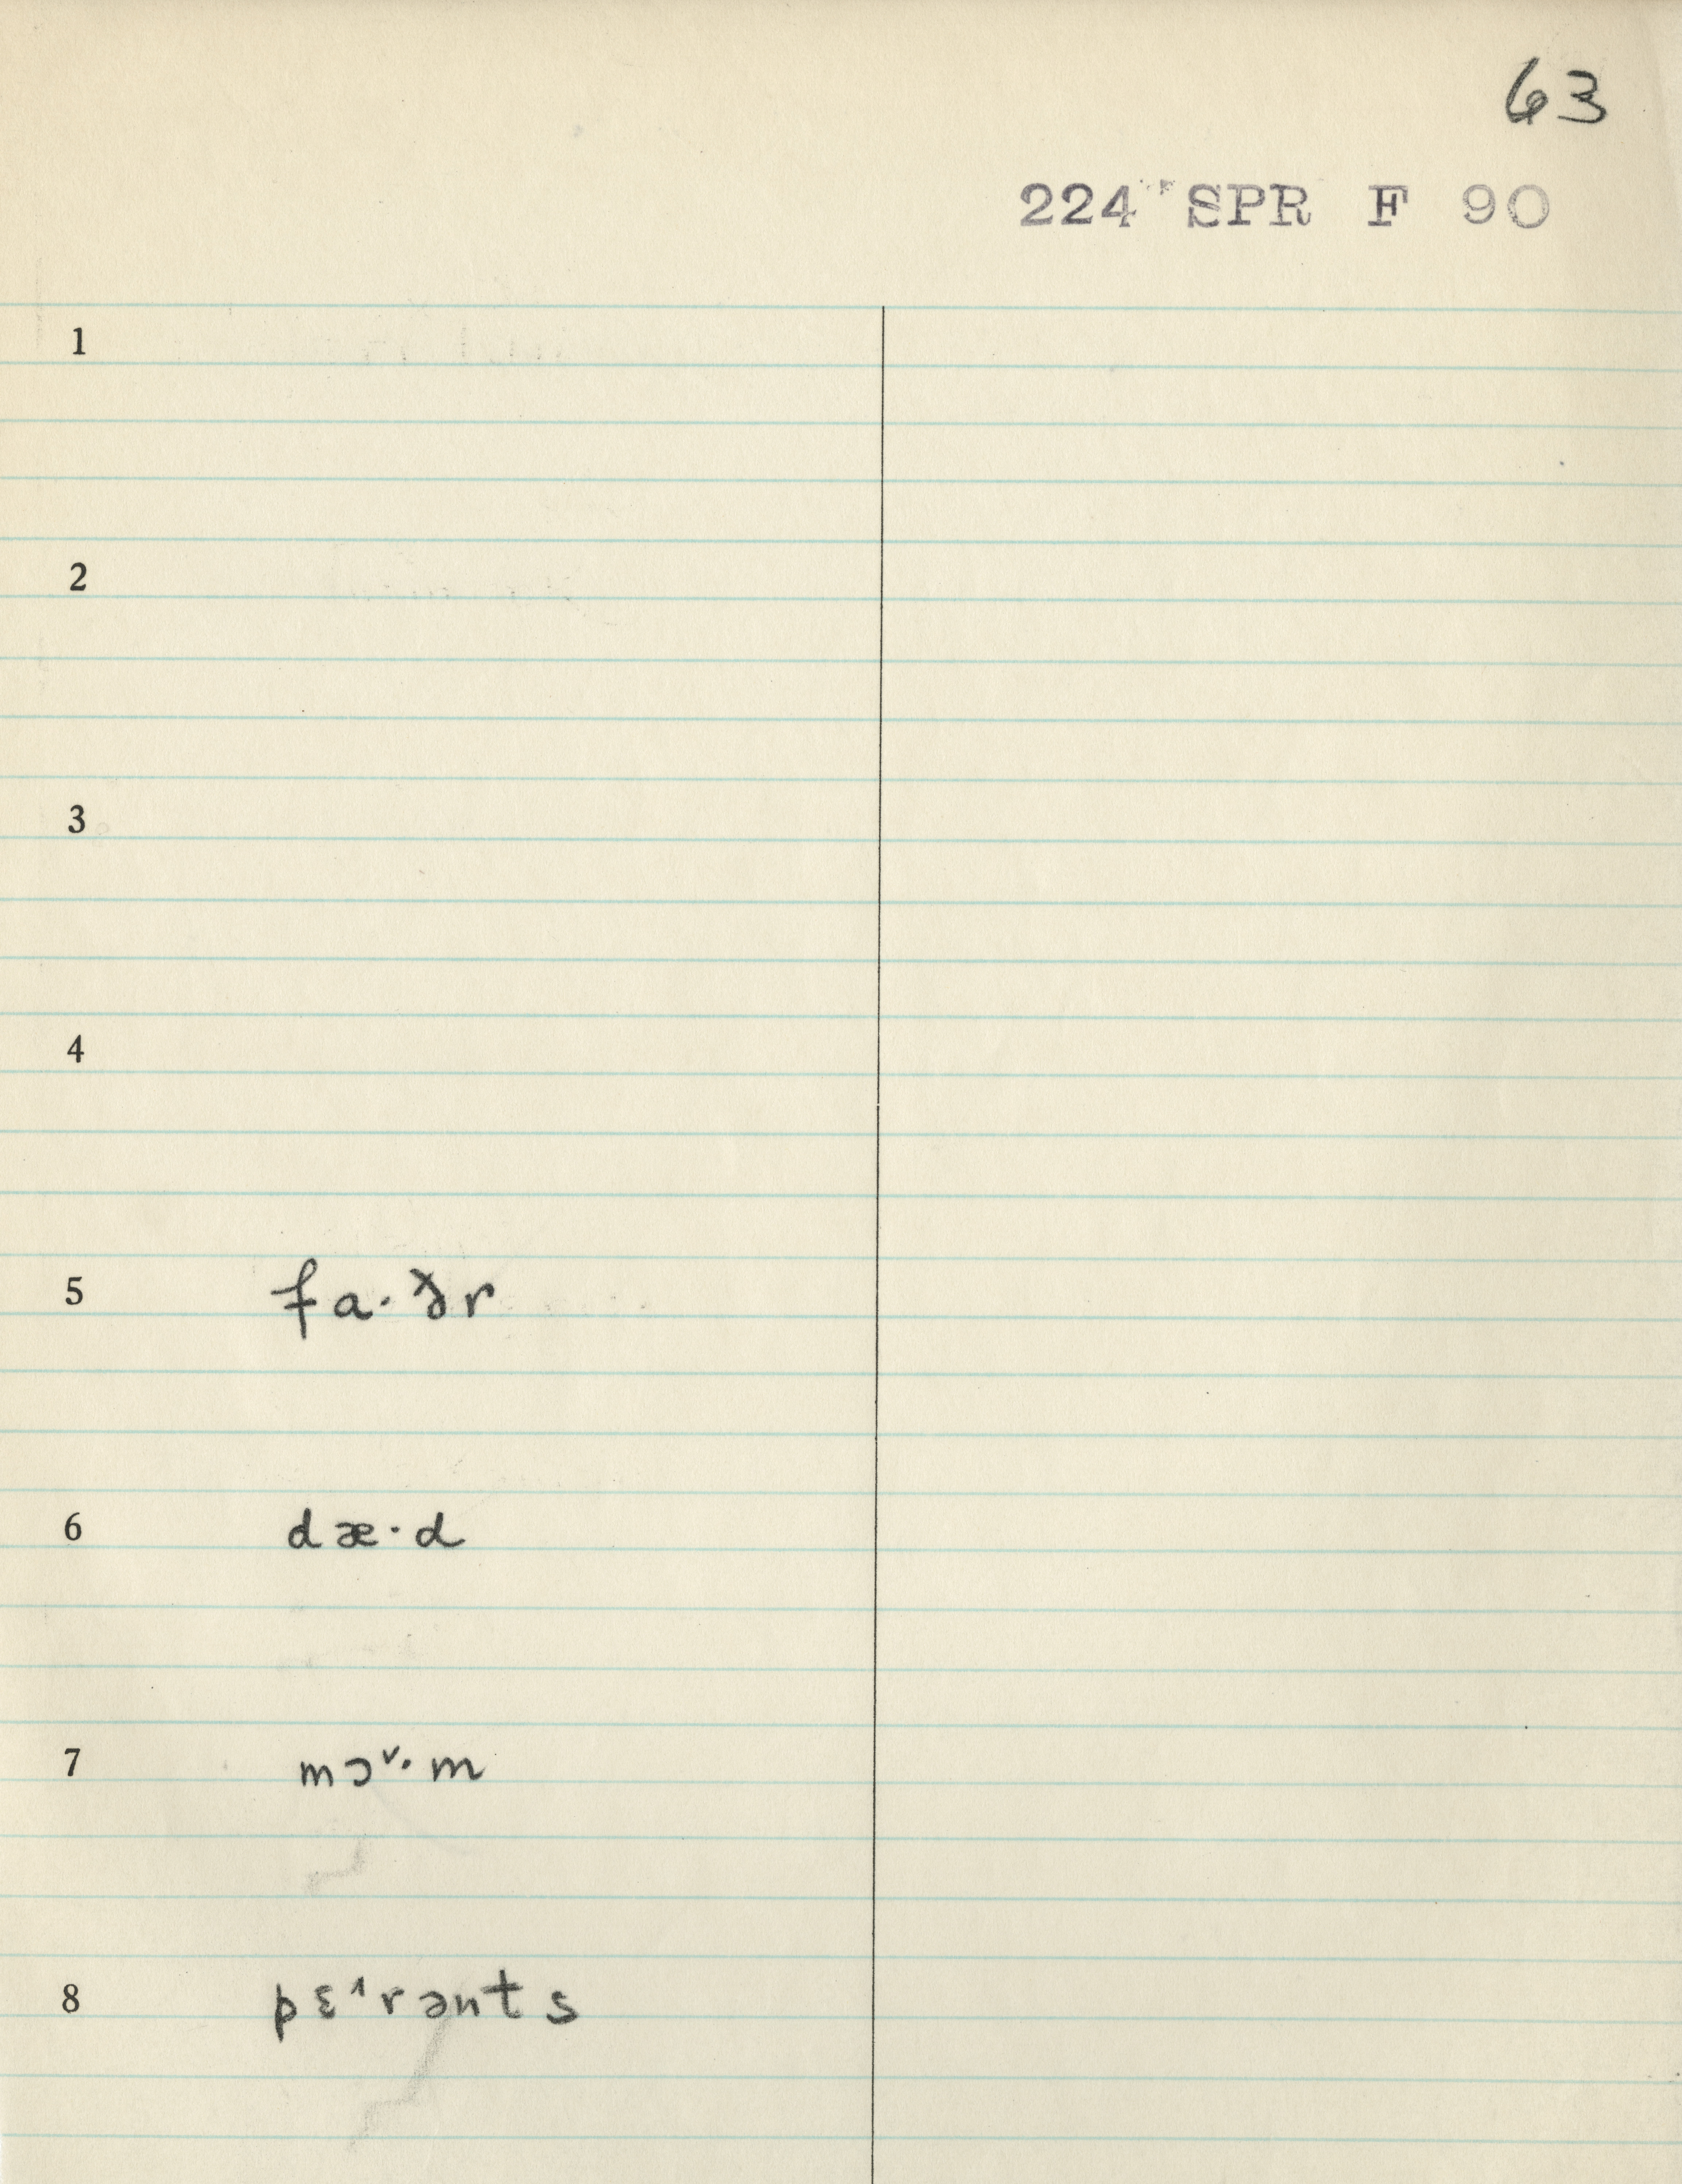 63
224 SPR F 90
1
2
3
4
5 fa·ðr
6 dæ·d
7 mɔ˅·m
8 pɛ˄rənts